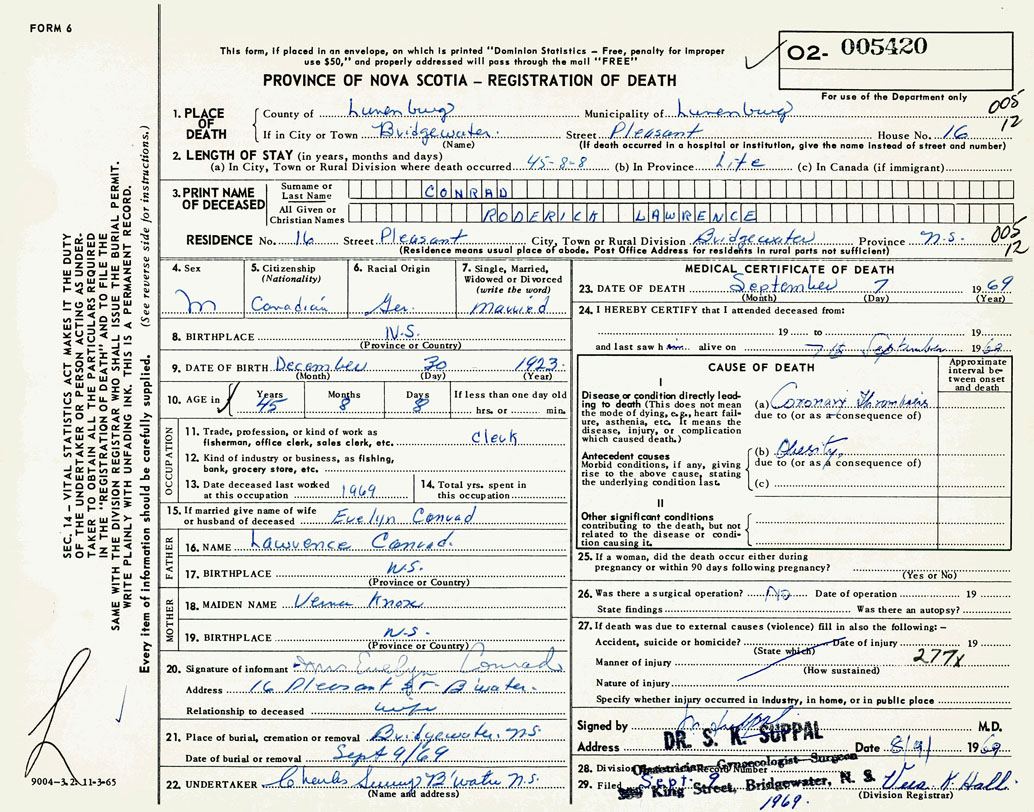 FORM 6
This form, if placed in an envelope, on which is printed "Dominion Statistics – Free, penalty for improper
use $50," and properly addressed will pass through the mail "FREE"
PROVINCE OF NOVA SCOTIA – REGISTRATION OF DEATH
O2- 005420
For use of the Department only
005
12
1. PLACE OF DEATH
County of Lunenburg Municipality of Lunenburg
If in City or Town Bridgewater Street Pleasant House No. 16
(Name) (If death occurred in a hospital or institution, give the name instead of street and number)
2. LENGTH OF STAY (in years, months and days)
(a) In City, Town or Rural Division where death occurred 45-8-8 (b) In Province Life (c) In Canada (if immigrant)
3. PRINT NAME OF DECEASED
Surname or Last Name CONRAD
All Given or Christian Names RODERICK LAWRENCE
RESIDENCE No. 16 Street Pleasant City, Town or Rural Division Bridgewater Province N.S.
(Residence means usual place of abode. Post Office Address for residents in rural parts not sufficient)
005
12
4. Sex
M
5. Citizenship
(Nationality)
Canadian
6. Racial Origin
Ger.
7. Single, Married,
Widowed or Divorced
(write the word)
Married
8. BIRTHPLACE N.S.
(Province or Country)
9. DATE OF BIRTH December 30 1923
(Month) (Day) (Year)
10. AGE in
Years Months Days If less than one day old
45 8 8 hrs. or min.
OCCUPATION
11. Trade, profession, or kind of work as
fisherman, office clerk, sales clerk, etc. Clerk
12. Kind of industry or business, as fishing,
bank, grocery store, etc.
13. Date deceased last worked
at this occupation 1969
14. Total yrs. spent in
this occupation
15. If married give name of wife
or husband of deceased Evelyn Conrad
FATHER
16. NAME Lawrence Conrad
17. BIRTHPLACE N.S.
(Province or Country)
MOTHER
18. MAIDEN NAME Verna Knox
19. BIRTHPLACE N.S.
(Province or Country)
20. Signature of informant Mrs Evelyn Conrad
Address 16 Pleasant St B'water.
Relationship to deceased wife
21. Place of burial, cremation or removal Bridgewater N.S.
Date of burial or removal Sept 9/69
22. UNDERTAKER Charles B'water N.S.
(Name and address)
MEDICAL CERTIFICATE OF DEATH
23. DATE OF DEATH September 7 1969
(Month) (Day) (Year)
24. I HEREBY CERTIFY that I attended deceased from:
19 to 19
and last saw him alive on 7th September 1969
CAUSE OF DEATH
Approximate
interval be-
tween onset
and death
I
Disease or condition directly lead-
ing to death (This does not mean
the mode of dying, e.g., heart fail-
ure, asthenia, etc. It means the
disease, injury, or complication
which caused death.)
(a) Coronary Thrombosis
due to (or as a consequence of)
Antecedent causes
Morbid conditions, if any, giving
rise to the above cause, stating
the underlying condition last.
(b) Obesity
due to (or as a consequence of)
(c)
II
Other significant conditions
contributing to the death, but not
related to the disease or condi-
tion causing it.
25. If a woman, did the death occur either during
pregnancy or within 90 days following pregnancy?
(Yes or No)
26. Was there a surgical operation? No Date of operation 19
State findings Was there an autopsy?
27. If death was due to external causes (violence) fill in also the following: –
Accident, suicide or homicide? Date of injury 19
(State which)
Manner of injury 277X
(How sustained)
Nature of injury
Specify whether injury occurred in industry, in home, or in public place
Signed by M.D.
DR. S. K. SUPPAL
Address Date 8/9/ 1969
Obstetrician Gynaecologist Surgeon
28. Division Record Number
King Street, Bridgewater, N. S.
29. Filed Sept. 9 1969. Vera K. Hall
(Division Registrar)
SEC. 14 – VITAL STATISTICS ACT MAKES IT THE DUTY
OF THE UNDERTAKER OR PERSON ACTING AS UNDER-
TAKER TO OBTAIN ALL THE PARTICULARS REQUIRED
IN THE "REGISTRATION OF DEATH" AND TO FILE THE
SAME WITH THE DIVISION REGISTRAR WHO SHALL ISSUE THE BURIAL PERMIT.
WRITE PLAINLY WITH UNFADING INK. THIS IS A PERMANENT RECORD.
Every item of information should be carefully supplied. (See reverse side for instructions.)
9004-3.2.11-3-65